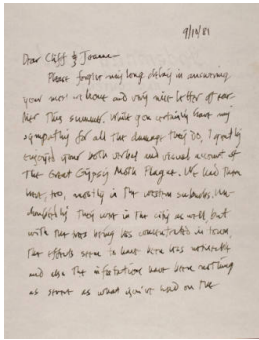 9/10/81
Dear Cliff & Joanne
Please forgive my long delay in answering
your most welcome and very nice letter of ear-
lier this summer. While you certainly have my
sympathy for all the damage they do, I greatly
enjoyed your both verbal and visual account of
The Great Gypsy Moth Plague. We had them
here, too, mostly in the western suburbs. Un-
doubtedly they were in the city as well, but
with the trees being less concentrated in town,
the effects seem to have been less noticeable
and also the infestations have been nothing
as severe as what you've had on the